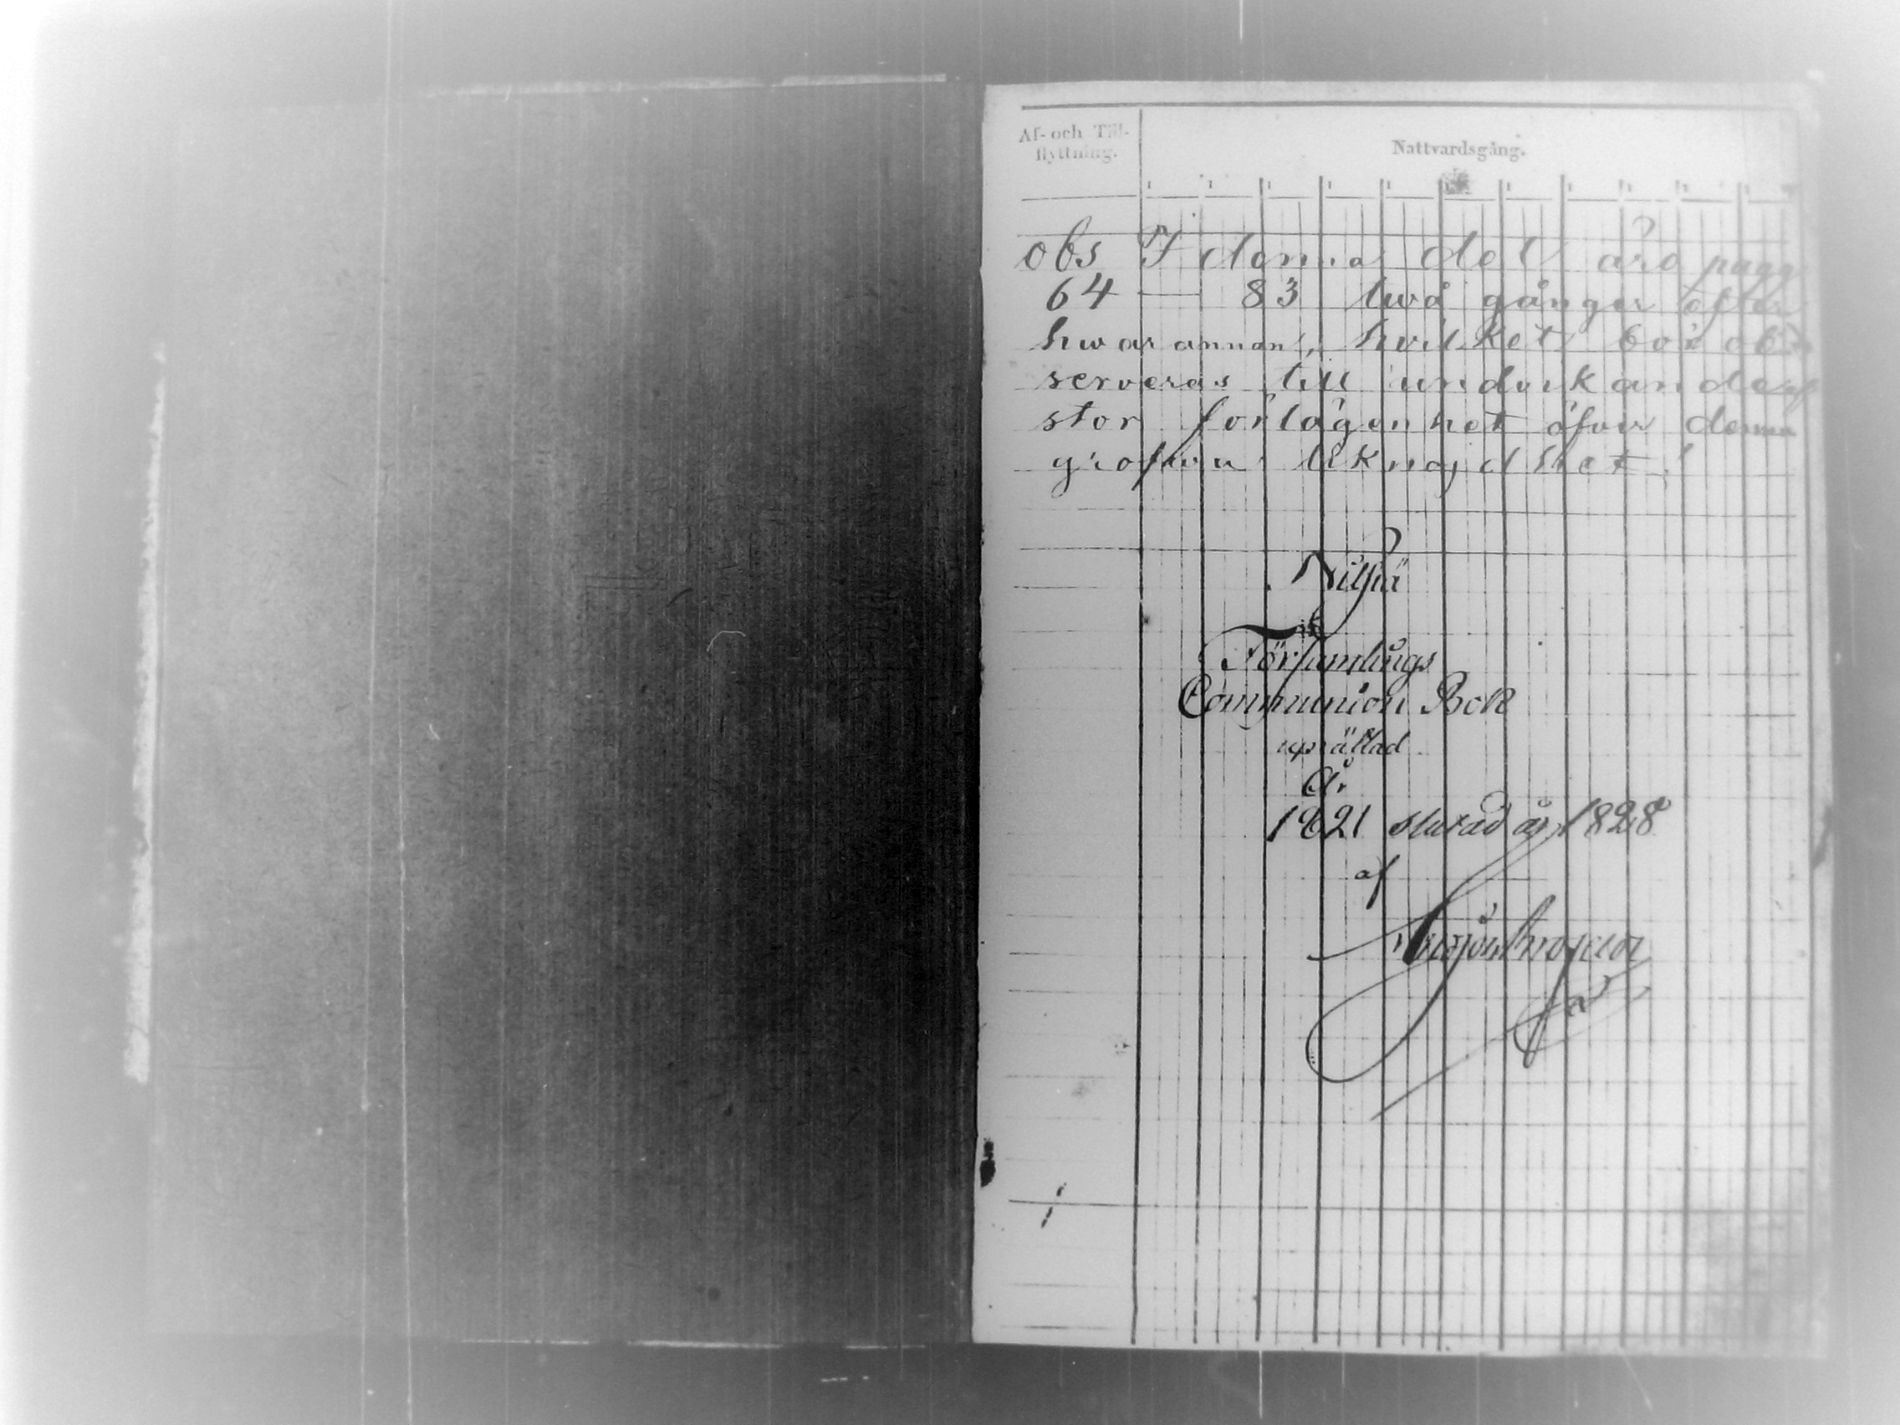 Af- och Till-
flyttning.
Nattvardsgång.
obs I denna del äro pagg
64 — 83 två gånger efter
hvarannan, hvilket bör ob-
serveras till undvikande af
stor förlägenhet öfver denna
grofva
Nilsiä
Församlings
Communion Bok
uprättad
År
1821 slutad år 1828
af